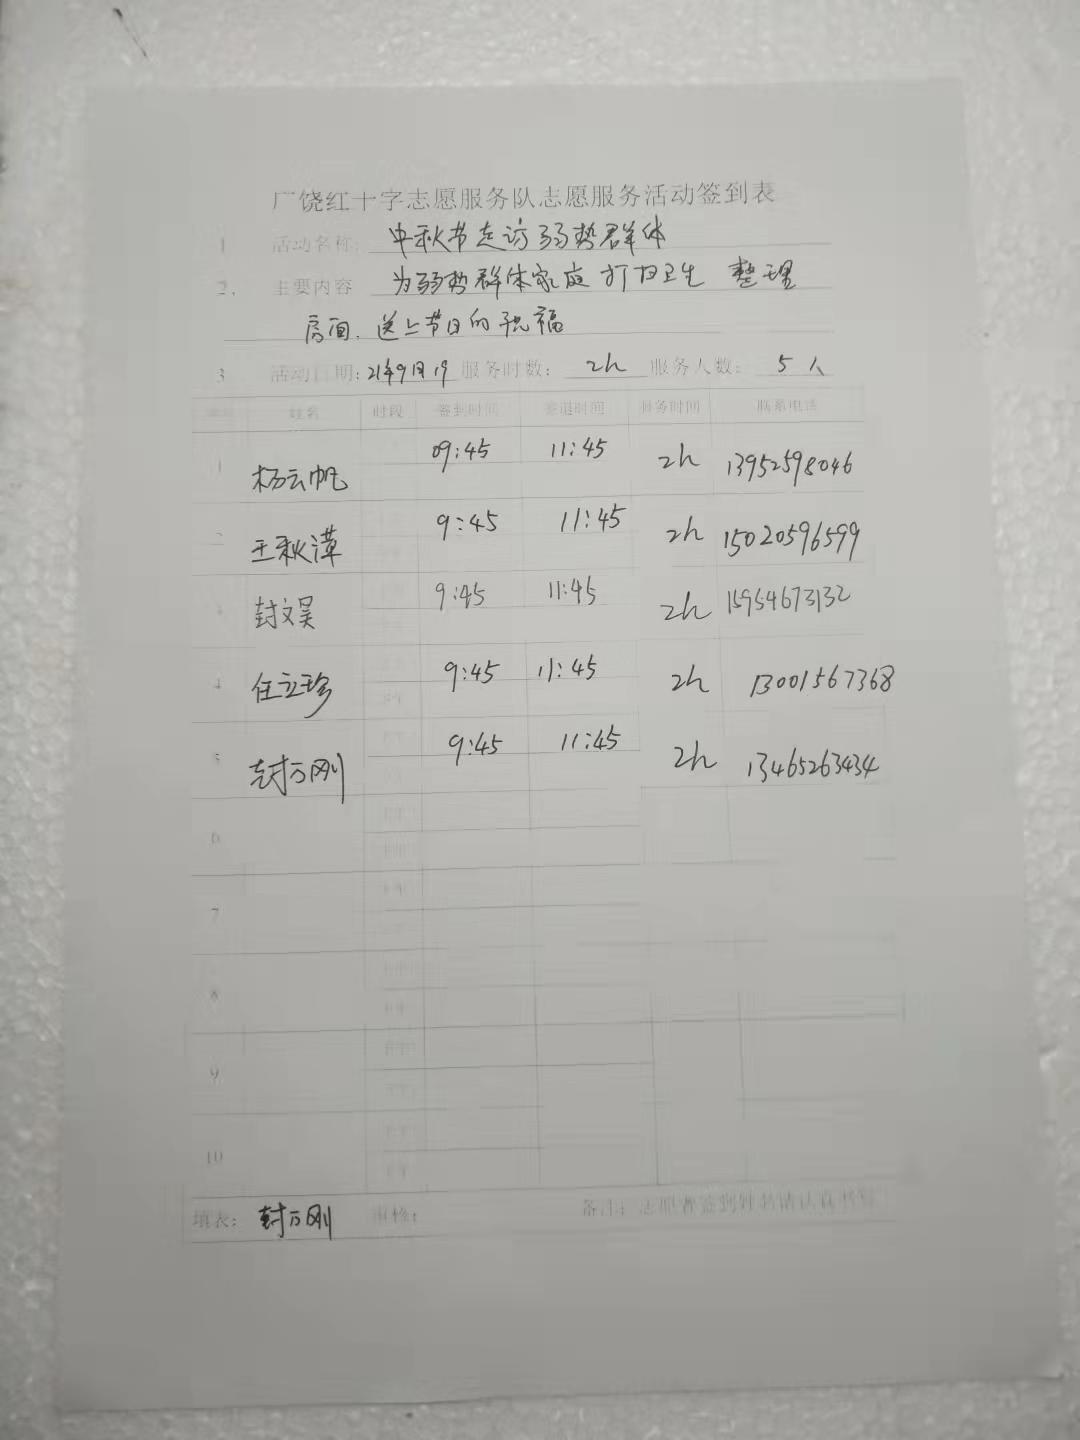 广饶红十字志愿服务队志愿服务活动签到表
1 活动名称: 中秋节走访弱势群体
2. 主要内容 为弱势群体家庭打扫卫生 整理
房间. 送上节日的祝福
3 活动日期: 21年9月19 服务时数: 2h 服务人数: 5人
姓名 时段 签到时间 签退时间 服务时间 联系电话
1 杨云帆 09:45 11:45 2h 13952598046
二 王秋漳 9:45 11:45 2h 15020596599
3 封文昊 9:45 11:45 2h 15954673132
4 任立珍 9:45 11:45 2h 13001567368
5 封万刚 9:45 11:45 2h 13465263434
6
7
8
9
10
填表: 封万刚 审核: 备注: 志愿者签到时请认真书写